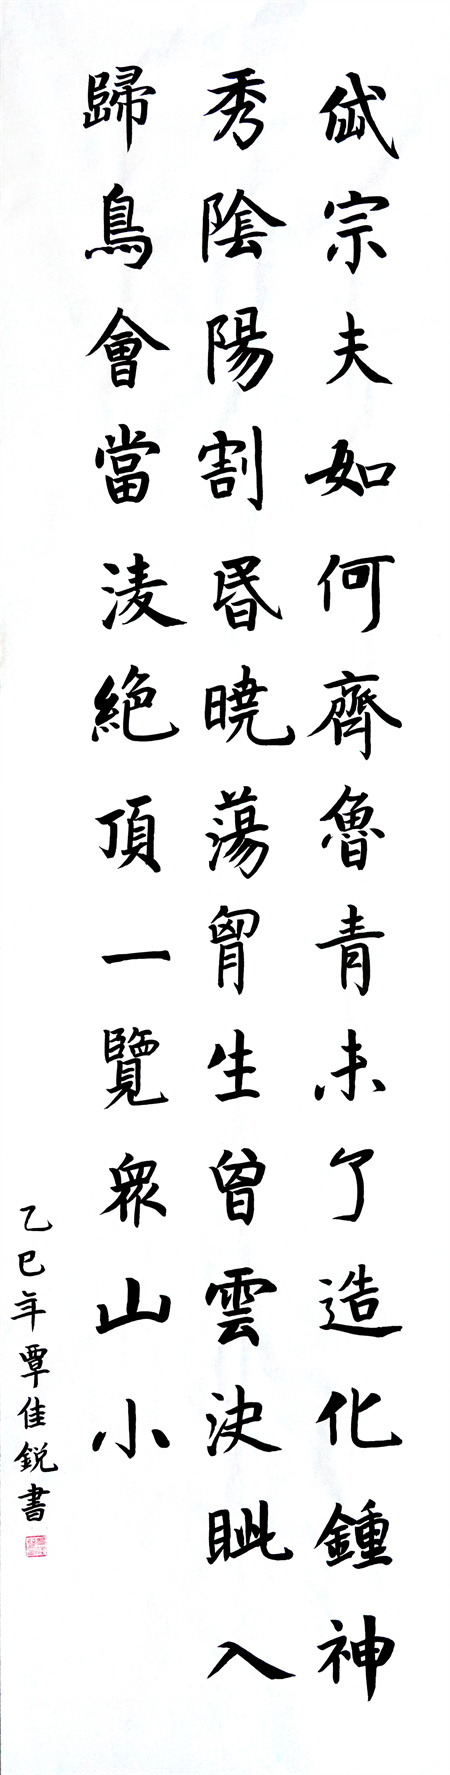 岱宗夫如何齊魯青未了造化鍾神
秀陰陽割昬曉蕩胷生曾雲決眦入
歸鳥會當淩絶頂一覽眾山小
乙巳年覃佳鋭書